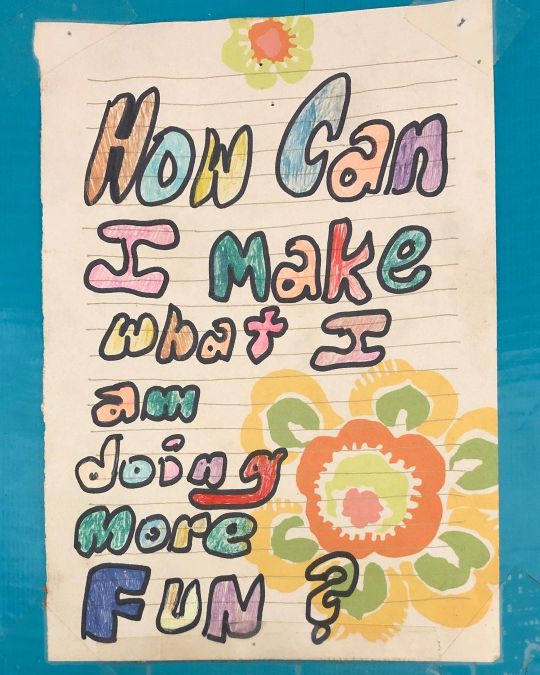 How Can
I make
what I
am
doing
more
FUN?